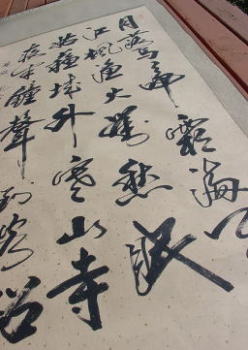 月落烏啼霜滿
江楓漁火對愁眠
姑蘇城外寒山寺
夜半鐘聲到客